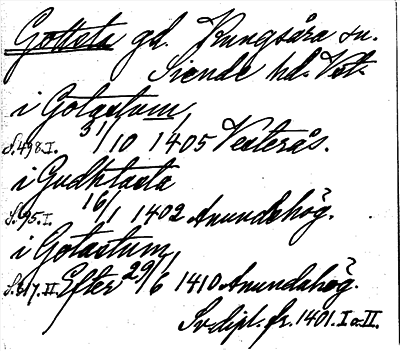 Gotteta gd. Kungsåra sn.
Siende hd. Vst.
i Gotastum
S. 498. I. 31/10 1405 Vesterås.
i Gudhtasta
S. 95. I. 16/1 1402 Anundahög.
i Gotastum
S. 817. II. Efter 29/6 1410 Anundahög.
Sv. dipl. fr. 1401. I o. II.